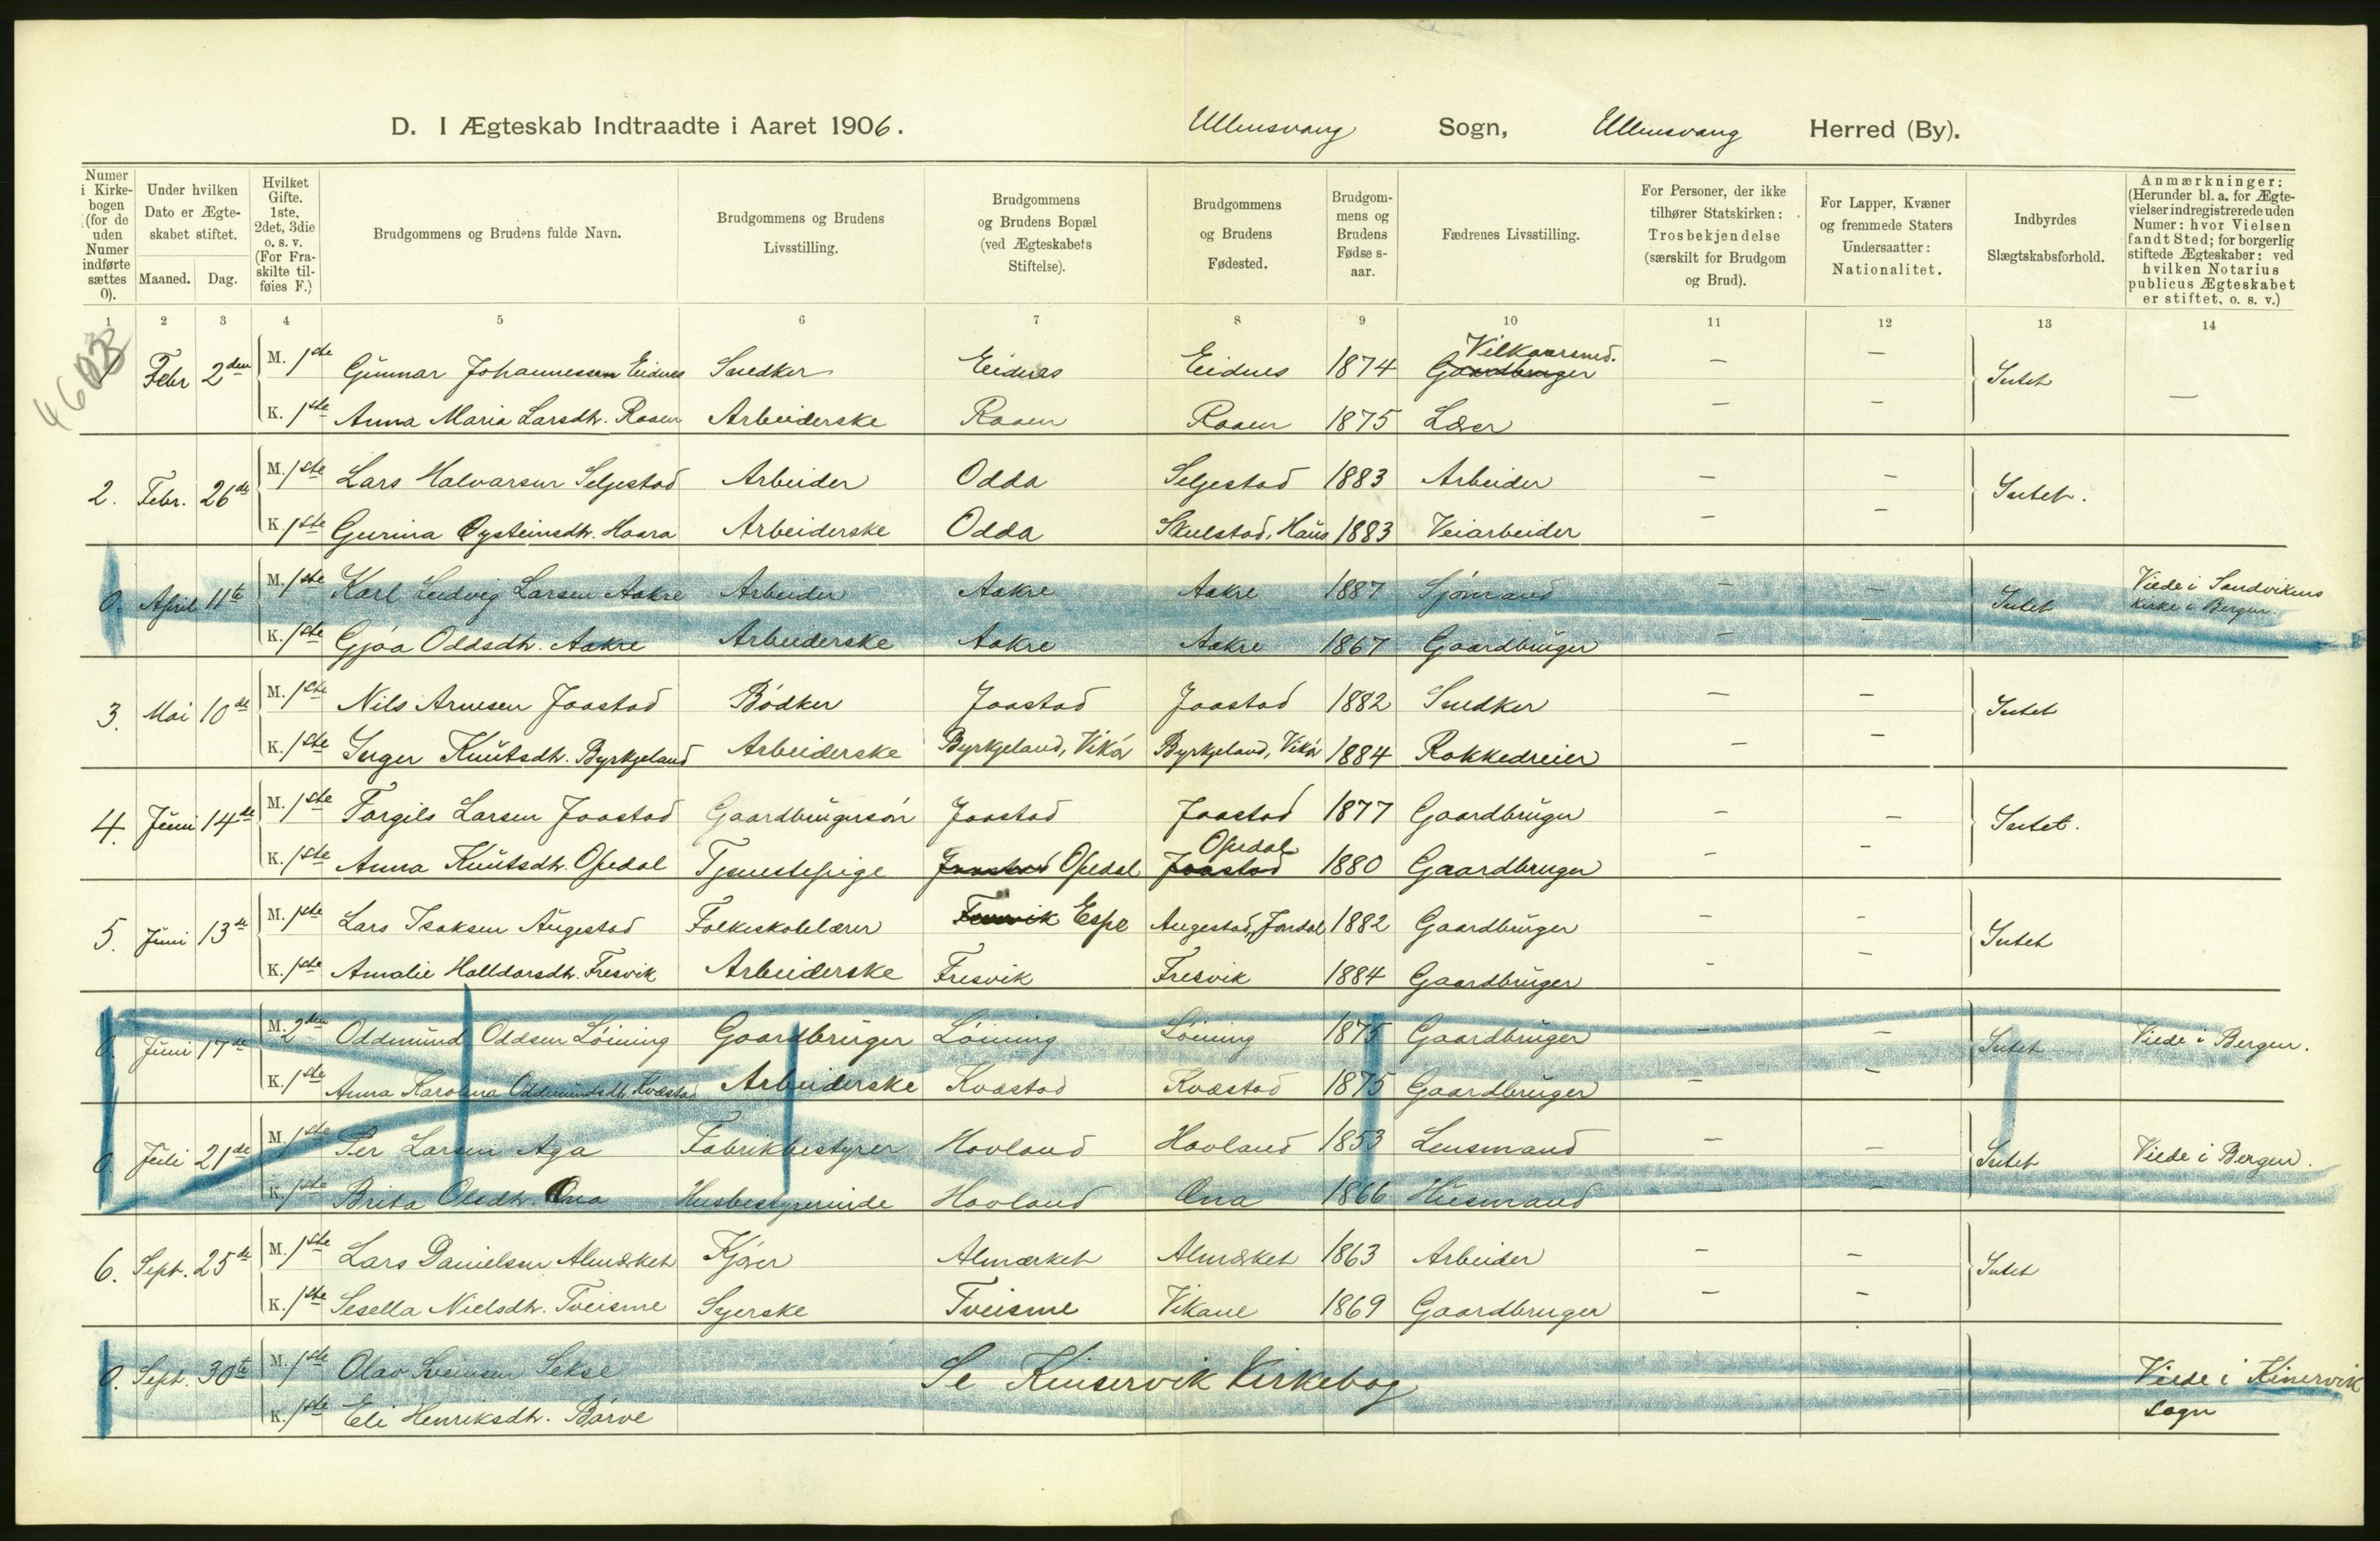 D. I Ægteskab Indtraadte i Aaret 1906. Ullensvang Sogn, Ullensvang Herred (By).
Numer i Kirkebogen (for de uden Numer indførte sættes 0).
Under hvilken Dato er Ægteskabet stiftet. Maaned. Dag.
Hvilket Gifte. 1ste, 2det, 3die o. s. v. (For Fraskilte tilføies F.)
Brudgommens og Brudens fulde Navn.
Brudgommens og Brudens Livsstilling.
Brudgommens og Brudens Bopæl (ved Ægteskabets Stiftelse).
Brudgommens og Brudens Fødested.
Brudgommens og Brudens Fødselsaar.
Fædrenes Livsstilling.
For Personer, der ikke tilhører Statskirken: Trosbekjendelse (særskilt for Brudgom og Brud).
For Lapper, Kvæner og fremmede Staters Undersaatter: Nationalitet.
Indbyrdes Slægtskabsforhold.
Anmærkninger: (Herunder bl. a. for Ægtevielser indregistrerede uden Numer: hvor Vielsen fandt Sted; for borgerlig stiftede Ægteskaber: ved hvilken Notarius publicus Ægteskabet er stiftet, o. s. v.)
1 2 3 4 5 6 7 8 9 10 11 12 13 14
Febr 2den M. 1ste Gunnar Johannessen Eidnes Snedker Eidnes Eidnes 1874 Gaardbruger Vilkaarsmd. — — Intet —
K. 1ste Anna Maria Larsdtr. Raaen Arbeiderske Raaen Raaen 1875 Lærer — —
2. Febr. 26de M. 1ste Lars Halvarsen Seljestad Arbeider Odda Seljestad 1883 Arbeider — — Intet.
K. 1ste Gurina Øysteinsdtr. Haara Arbeiderske Odda Skulstad, Haus 1883 Veiarbeider — —
0. April 11te M. 1ste Karl Ludvig Larsen Aakre Arbeider Aakre Aakre 1887 Sjømand — — Intet Viede i Sandvikens kirke i Bergen.
K. 1ste Gjøa Oddsdtr. Aakre Arbeiderske Aakre Aakre 1867 Gaardbruger — —
3. Mai 10de M. 1ste Nils Arnesen Jaastad Bødker Jaastad Jaastad 1882 Snedker — — Intet
K. 1ste Inger Knutsdtr. Byrkjeland Arbeiderske Byrkjeland, Vikør Byrkjeland, Vikør 1884 Rokkedreier — —
4. Juni 14de M. 1ste Torgils Larsen Jaastad Gaardbrugersøn Jaastad Jaastad 1877 Gaardbruger — — Intet.
K. 1ste Anna Knutsdtr. Opedal Tjenestepige Jaastad Opedal Jaastad Opedal 1880 Gaardbruger — —
5. Juni 13de M. 1ste Lars Isaksen Augestad Folkeskolelærer Espe Augestad, Jondal 1882 Gaardbruger — — Intet
K. 1ste Amalie Halldorsdtr. Fresvik Arbeiderske Fresvik Fresvik 1884 Gaardbruger — —
0. Juni 17de M. 2den Oddmund Oddsen Løining Gaardbruger Løining Løining 1875 Gaardbruger — — Intet Viede i Bergen.
K. 1ste Anna Karolina Oddmundsdtr. Kvæstad Arbeiderske Kvæstad Kvæstad 1875 Gaardbruger — —
0. Juli 21de M. 1ste Per Larsen Aga Fabrikbestyrer Hovland Hovland 1853 Lensmand — — Intet Viede i Bergen.
K. 1ste Brita Olsdtr. Husbestyrerinde Hovland 1866 Husmand — —
6. Sept. 25de M. 1ste Lars Danielsen Almerket Kjører Almerket Almerket 1863 Arbeider — — Intet
K. 1ste Sesella Nielsdtr. Tveisme Syerske Tveisme Vikane 1869 Gaardbruger — —
0. Sept. 30te M. 1ste Olav Sveinsen Sekse Se Kinservik Kirkebog Viede i Kinervik sogn
K. 1ste Eli Henriksdtr. Børve